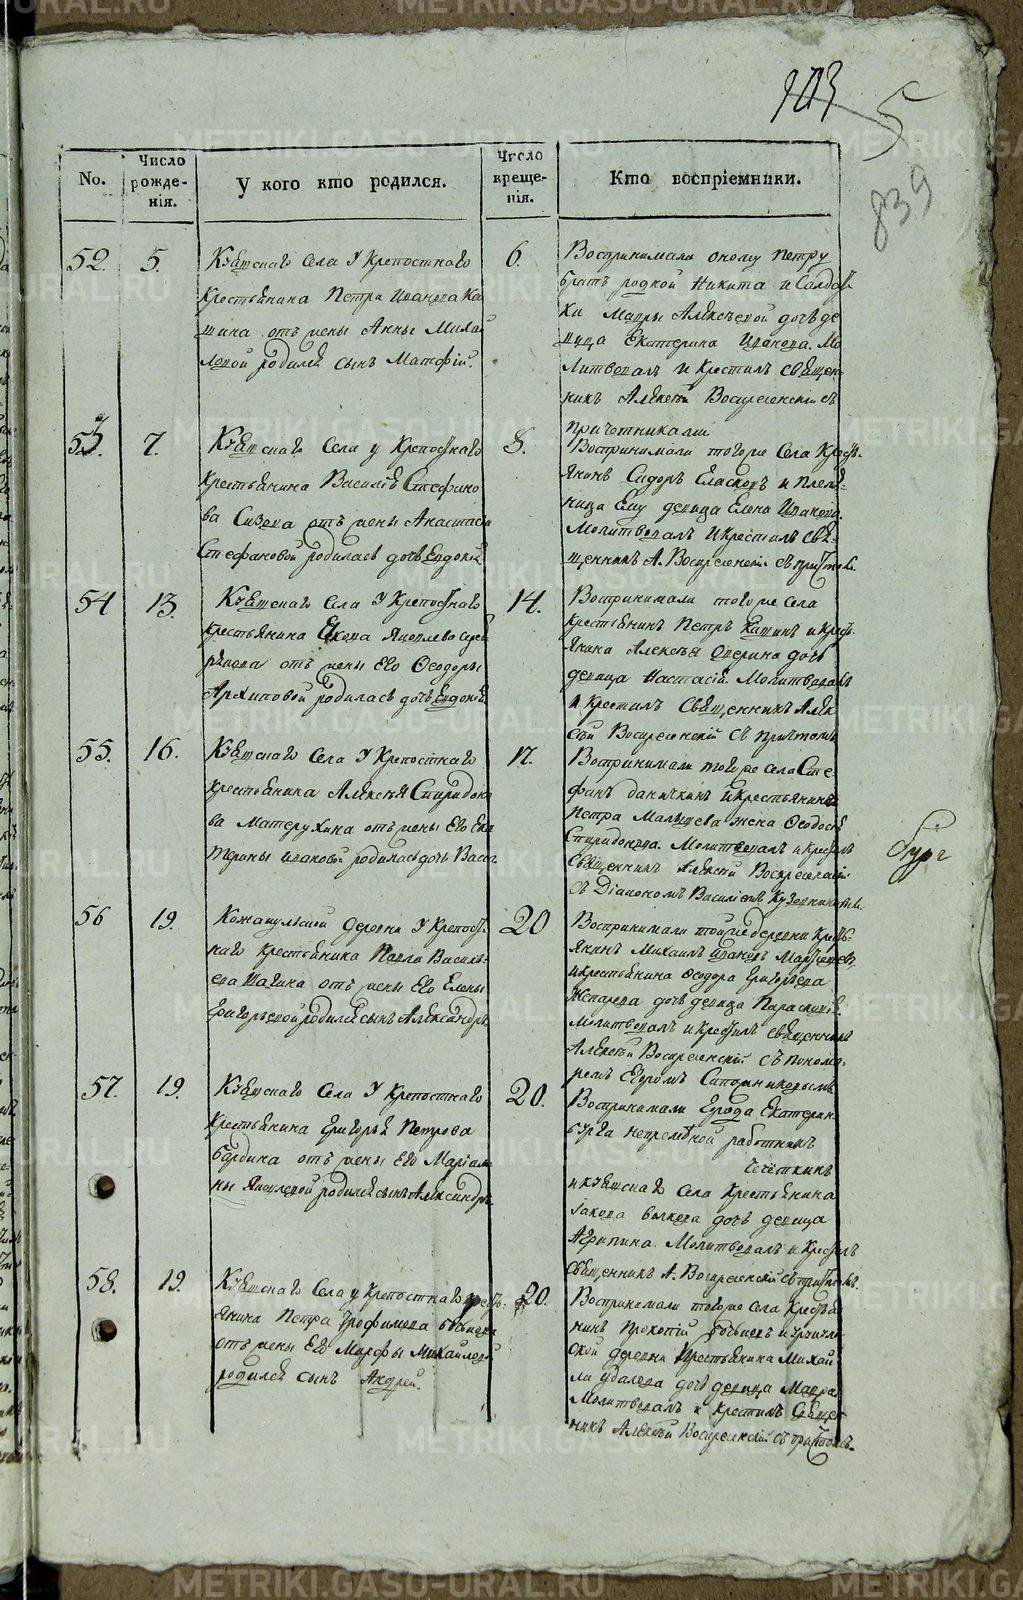 903
5
839
No.
Число рожде- нія.
У кого кто родился.
Число креще- нія.
Кто воспріемники.
52.
5.
Села У Крепостнаго
Крестьянина Петра Иванова Ка
шина отъ жены Анны Михай
ловой родился сынъ Матфій.
6.
Воспринимали оному Петру
братъ родной Никита и Солдат
ки Мавры Алексѣевой дочь де
вица Екатерина Иванова. Мо
литвовалъ и Крестилъ священ
никъ Алексѣй Воскресенскій съ
причетниками
53.
7.
Села у Крепостнаго
Крестьянина Василья Стефано
ва Сизова отъ жены Анастасіи
Стефановой родилась дочь Евдокія
8.
Воспринимали того же Села Крестъ
янинъ Сидоръ и племя
ница Ему девица Елена Иванова.
Молитвовалъ и крестилъ свя
щенникъ А. Воскресенскій съ
54
13.
Села У Крепостнаго
Крестьянина Якова Яковлева
отъ жены Его Ѳеодоры
Архиповой родилась дочь Евдокія
14.
Воспринимали того же села
Крестьянинъ Петръ Кашинъ и Крест
янина Алексѣя дочь
девица Настасія. Молитвовалъ
и Крестилъ Священникъ Алек
сѣй Воскресенскій съ Причтомъ
55.
16.
Села У Крепостнаго
крестьянина Алексѣя Спиридоно
ва Матерухина отъ жены Его Ека
терины Ивановой родилась дочь Васса
17.
Воспринимали того же села Сте
фанъ Даничкинъ и Крестьянина
Петра Малышева жена Ѳеодосья
Спиридонова. Молитвовалъ и крестилъ
Священникъ Алексѣй Воскресенскій
съ Діакономъ Василіемъ
56
19.
деревни У Крепост
наго Крестьянина Павла Василь
ева Шагина отъ жены Его Елены
Григорьевой родился сынъ Александръ
20
Воспринимали той же деревни Кресть
янинъ Михаилъ Ивановъ
и крестьянина Ѳеодора Григорьева
дочь девица Параскивія.
Молитвовалъ и крестилъ священникъ
Алексѣй Воскресенскій съ поном
ремъ Егоромъ Сапожниковымъ
57.
19.
Села У Крепостнаго
Крестьянина Григорья Петрова
Бардина отъ жены Его Маріам
ны Яковлевой родился сынъ Александръ
20.
Воспринимали Города Екатерин
бурга непремѣнной работникъ
Чечеткинъ
и Села Крестьянина
Іакова Волкова дочь девица
Агрипина. Молитвовалъ и Крестилъ
священникъ А. Воскресенскій съ причтомъ.
58.
19.
Села у крепостнаго крест
янина Петра Трофимова
отъ жены Его Марфы Михайловой
родился сынъ Андрей.
20.
Воспринимали того же села Крестья
нинъ Прокопій и
ской деревни Крестьянина Михай
ла дочь девица Мавра
Молитвовалъ и Крестилъ Священ
никъ Алексѣй Воскресенскій съ причтомъ.
METRIKI.GASO-URAL.RU